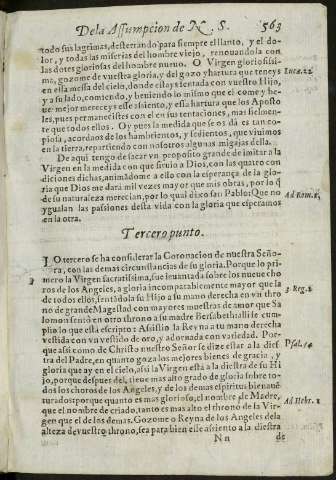 De la Assumpcion de N. S. 563
todo sus lagrimas, desterrando para siempre el llanto, y el do-
lor, y todas las miserias del hombre viejo, renouandola con
las dotes gloriosas del hombre nueuo. O Virgen gloriosissi-
ma, gozome de vuestra gloria, y del gozo y hartura que teneys Luca. 22
en essa mesa del cielo, donde estays sentada con vuestro Hijo,
y a su lado, comiendo, y beuiendo lo mismo que el come y be-
ue: mejor mereceys esse assiento, y essa hartura que los Aposto
les, pues permanecistes con el en sus tentaciones, mas fielmen-
te que todos ellos. O y pues la medida que se os da es tan co-
piosa, acordaos de los hambrientos, y sedientos, que viuimos
en la tierra, repartiendo con nosotros algunas migajas della.
De aqui tengo de sacar vn proposito grande de imitar a la
Virgen en la medida con que siruio a Dios, con las quatro con
diciones dichas, animandome a ello con la esperança de la glo-
ria que Dios me dará mil vezes mayor que mis obras, por lo q̃
de su naturaleza merecian, por lo qual dixo san Pablo: Que no Ad Rom. 8.
ygualan las passiones desta vida con la gloria que esperamos
en la otra.
Tercero punto.
LO tercero se ha considerar la Coronacion de nuestra Seño-
ra, con las demas circunstancias de su gloria. Porque lo pri
mero la Virgen sacratissima, fue leuantada sobre los nueue cho
ros de los Angeles, a gloria incomparablemente mayor que la
de todos ellos, sentádola su Hijo a su mano derecha en vn thro 3. Reg. 2
no de grande Magestad con mayores muestras de amor que Sa
lomon sentó en otro throno a su madre Bersabe: alli se cum-
plio lo que està escripto: Assistio la Reyna a tu mano derecha
vestida con vn vestido de oro, y adornada con variedad. Por- Psal. 44
que assi como de Christo nuestro Señor se dize estar a la dies
tra del Padre, en quanto goza los mejores bienes de gracia, y
gloria que ay en el cielo, assi la Virgen està a la diestra de su Hi
jo, porque despues del, tiene mas alto grado de gloria sobre to-
dos los choros de los Angeles, y de los demas espiritus bienauē
turados: porque quanto es mas glorioso, el nombre de Madre,
que el nombre de criado, tanto es mas alto el throno de la Vir- Ad Hebr. 1
gen que el de los demas. Gozome o Reyna de los Angeles de la
alteza de vuestro throno, sea para bien esse assiento a la diestra
N n de